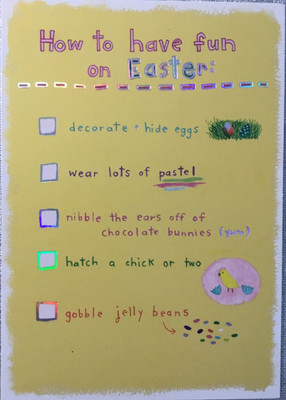 How to have fun
on Easter:
decorate + hide eggs
wear lots of pastel
nibble the ears off of
chocolate bunnies (yum)
hatch a chick or two
gobble jelly beans